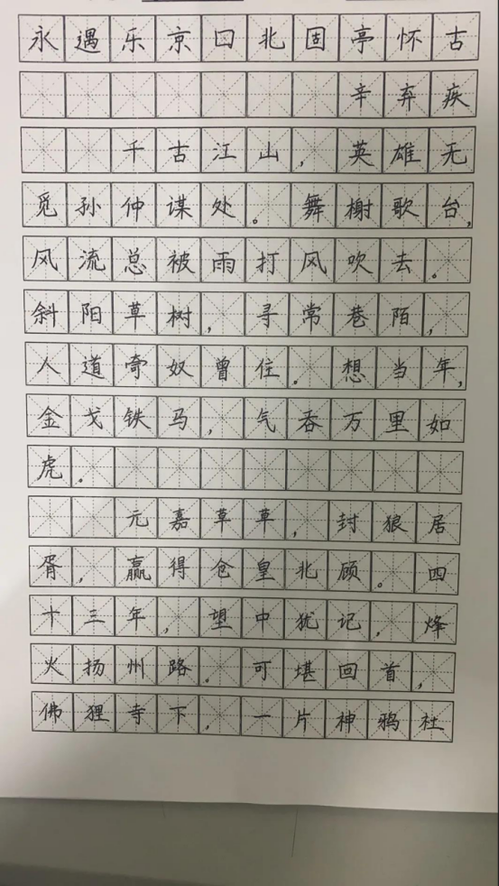 永遇乐京口北固亭怀古
辛弃疾
千古江山，英雄无
觅孙仲谋处。舞榭歌台，
风流总被雨打风吹去。
斜阳草树，寻常巷陌，
人道寄奴曾住。想当年，
金戈铁马，气吞万里如
虎。
元嘉草草，封狼居
胥，赢得仓皇北顾。四
十三年，望中犹记，烽
火扬州路。可堪回首，
佛狸寺下，一片神鸦社